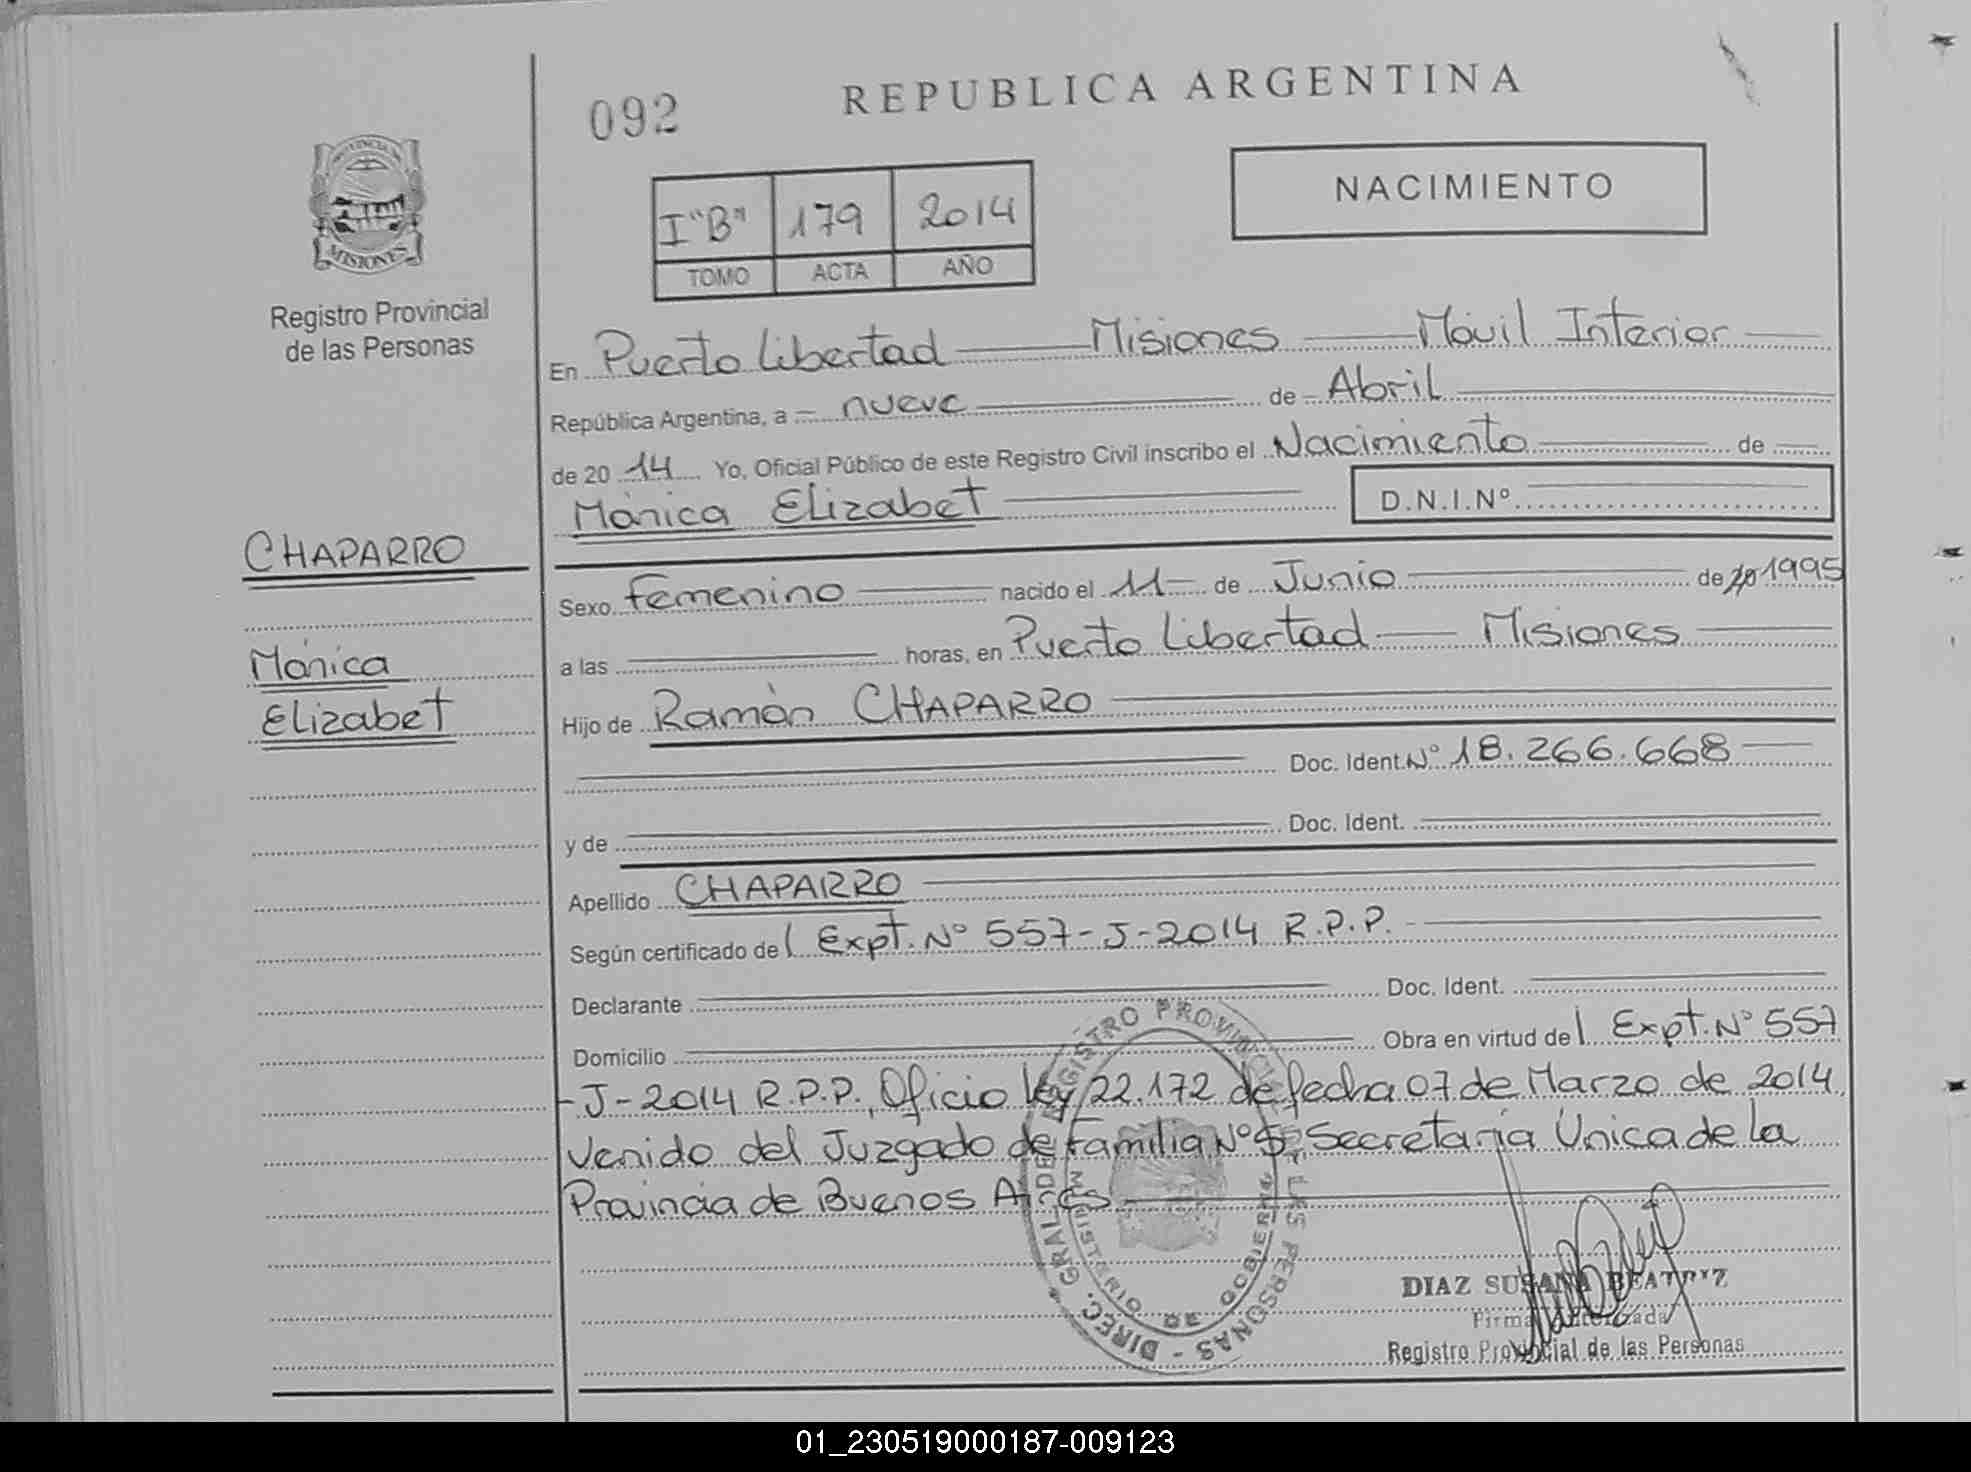 092
REPUBLICA ARGENTINA
PROVINCIA DE
MISIONES
Registro Provincial
de las Personas
I "B" 179 2014
TOMO ACTA AÑO
NACIMIENTO
En Puerto Libertad Misiones Móvil Interior
República Argentina, a nueve de Abril
de 2014 Yo, Oficial Público de este Registro Civil inscribo el Nacimiento de
Mónica Elizabet D.N.I.Nº
CHAPARRO
Mónica
Elizabet
Sexo Femenino nacido el 11 de Junio de 20 1995
a las horas, en Puerto Libertad Misiones
Hijo de Ramón CHAPARRO
Doc. Ident. Nº 18.266.668
y de Doc. Ident.
Apellido CHAPARRO
Según certificado del Expt. Nº 557-J-2014 R.P.P.
Declarante Doc. Ident.
Domicilio Obra en virtud del Expt. Nº 557
-J-2014 R.P.P., Oficio ley 22.172 de fecha 07 de Marzo de 2014
Venido del Juzgado de Familia Nº 5, Secretaría Única de la
Provincia de Buenos Aires
DIREC. GRAL. DEL REGISTRO PROVINCIAL DE LAS PERSONAS -
MINISTERIO DE GOBIERNO
DIAZ SUSANA BEATRIZ
Firma Autorizada
Registro Provincial de las Personas
01_230519000187-009123